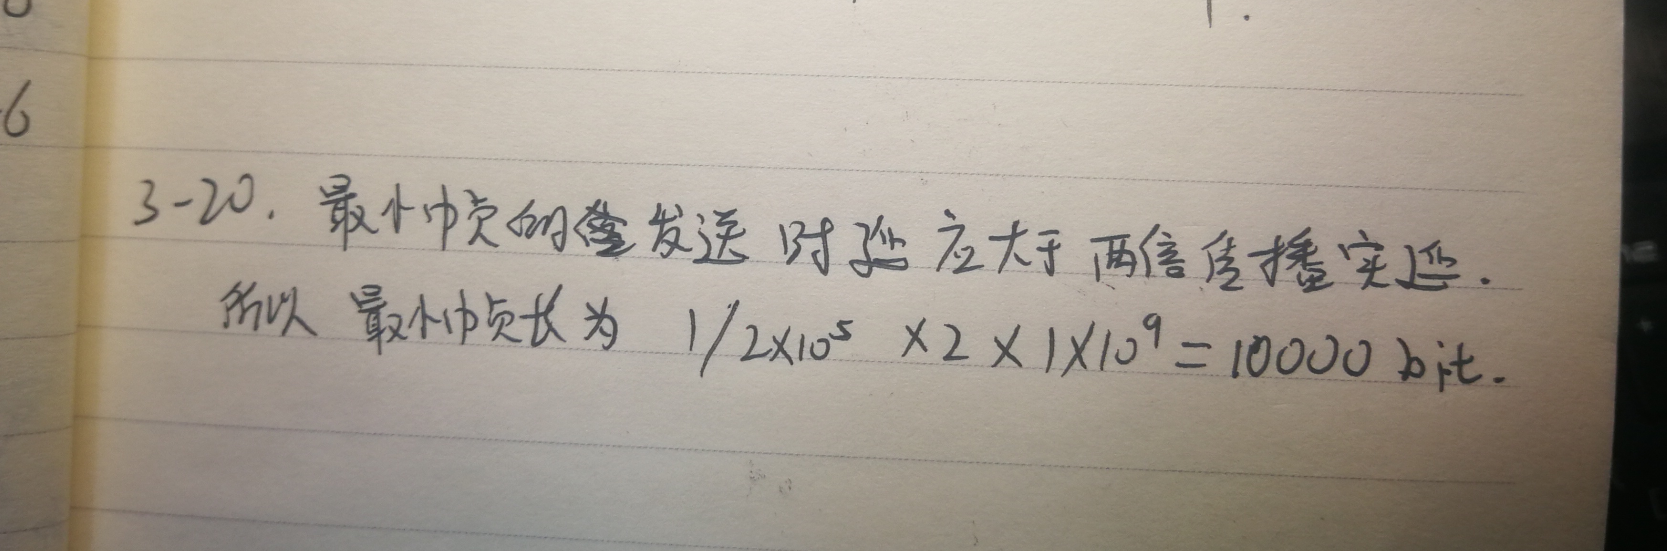 6
3-20. 最小帧的发送时延应大于两倍传播实延.
所以 最小帧长为 1/2×10⁵ ×2×1×10⁹=10000 bit.